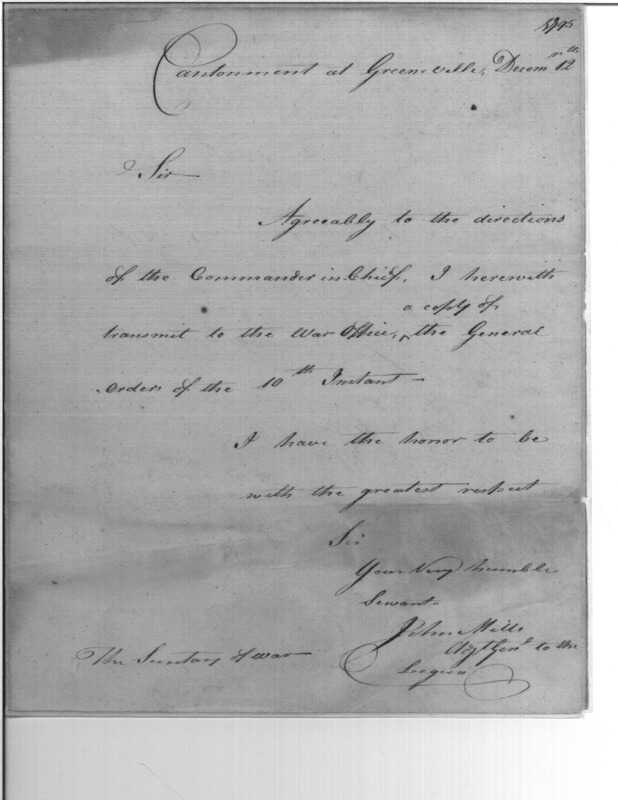 1795
Cantonment at Greeneville, Decemr 12th
Sir
Agreeably to the directions
of the Commander in Chief, I herewith
a copy of
transmit to the War Office, ^ the General
orders of the 10th Instant —
I have the honor to be
with the greatest respect
Sir
Your Very humble
Servant
John Mills
Adjt Genl to the
The Secretary of War
Legion